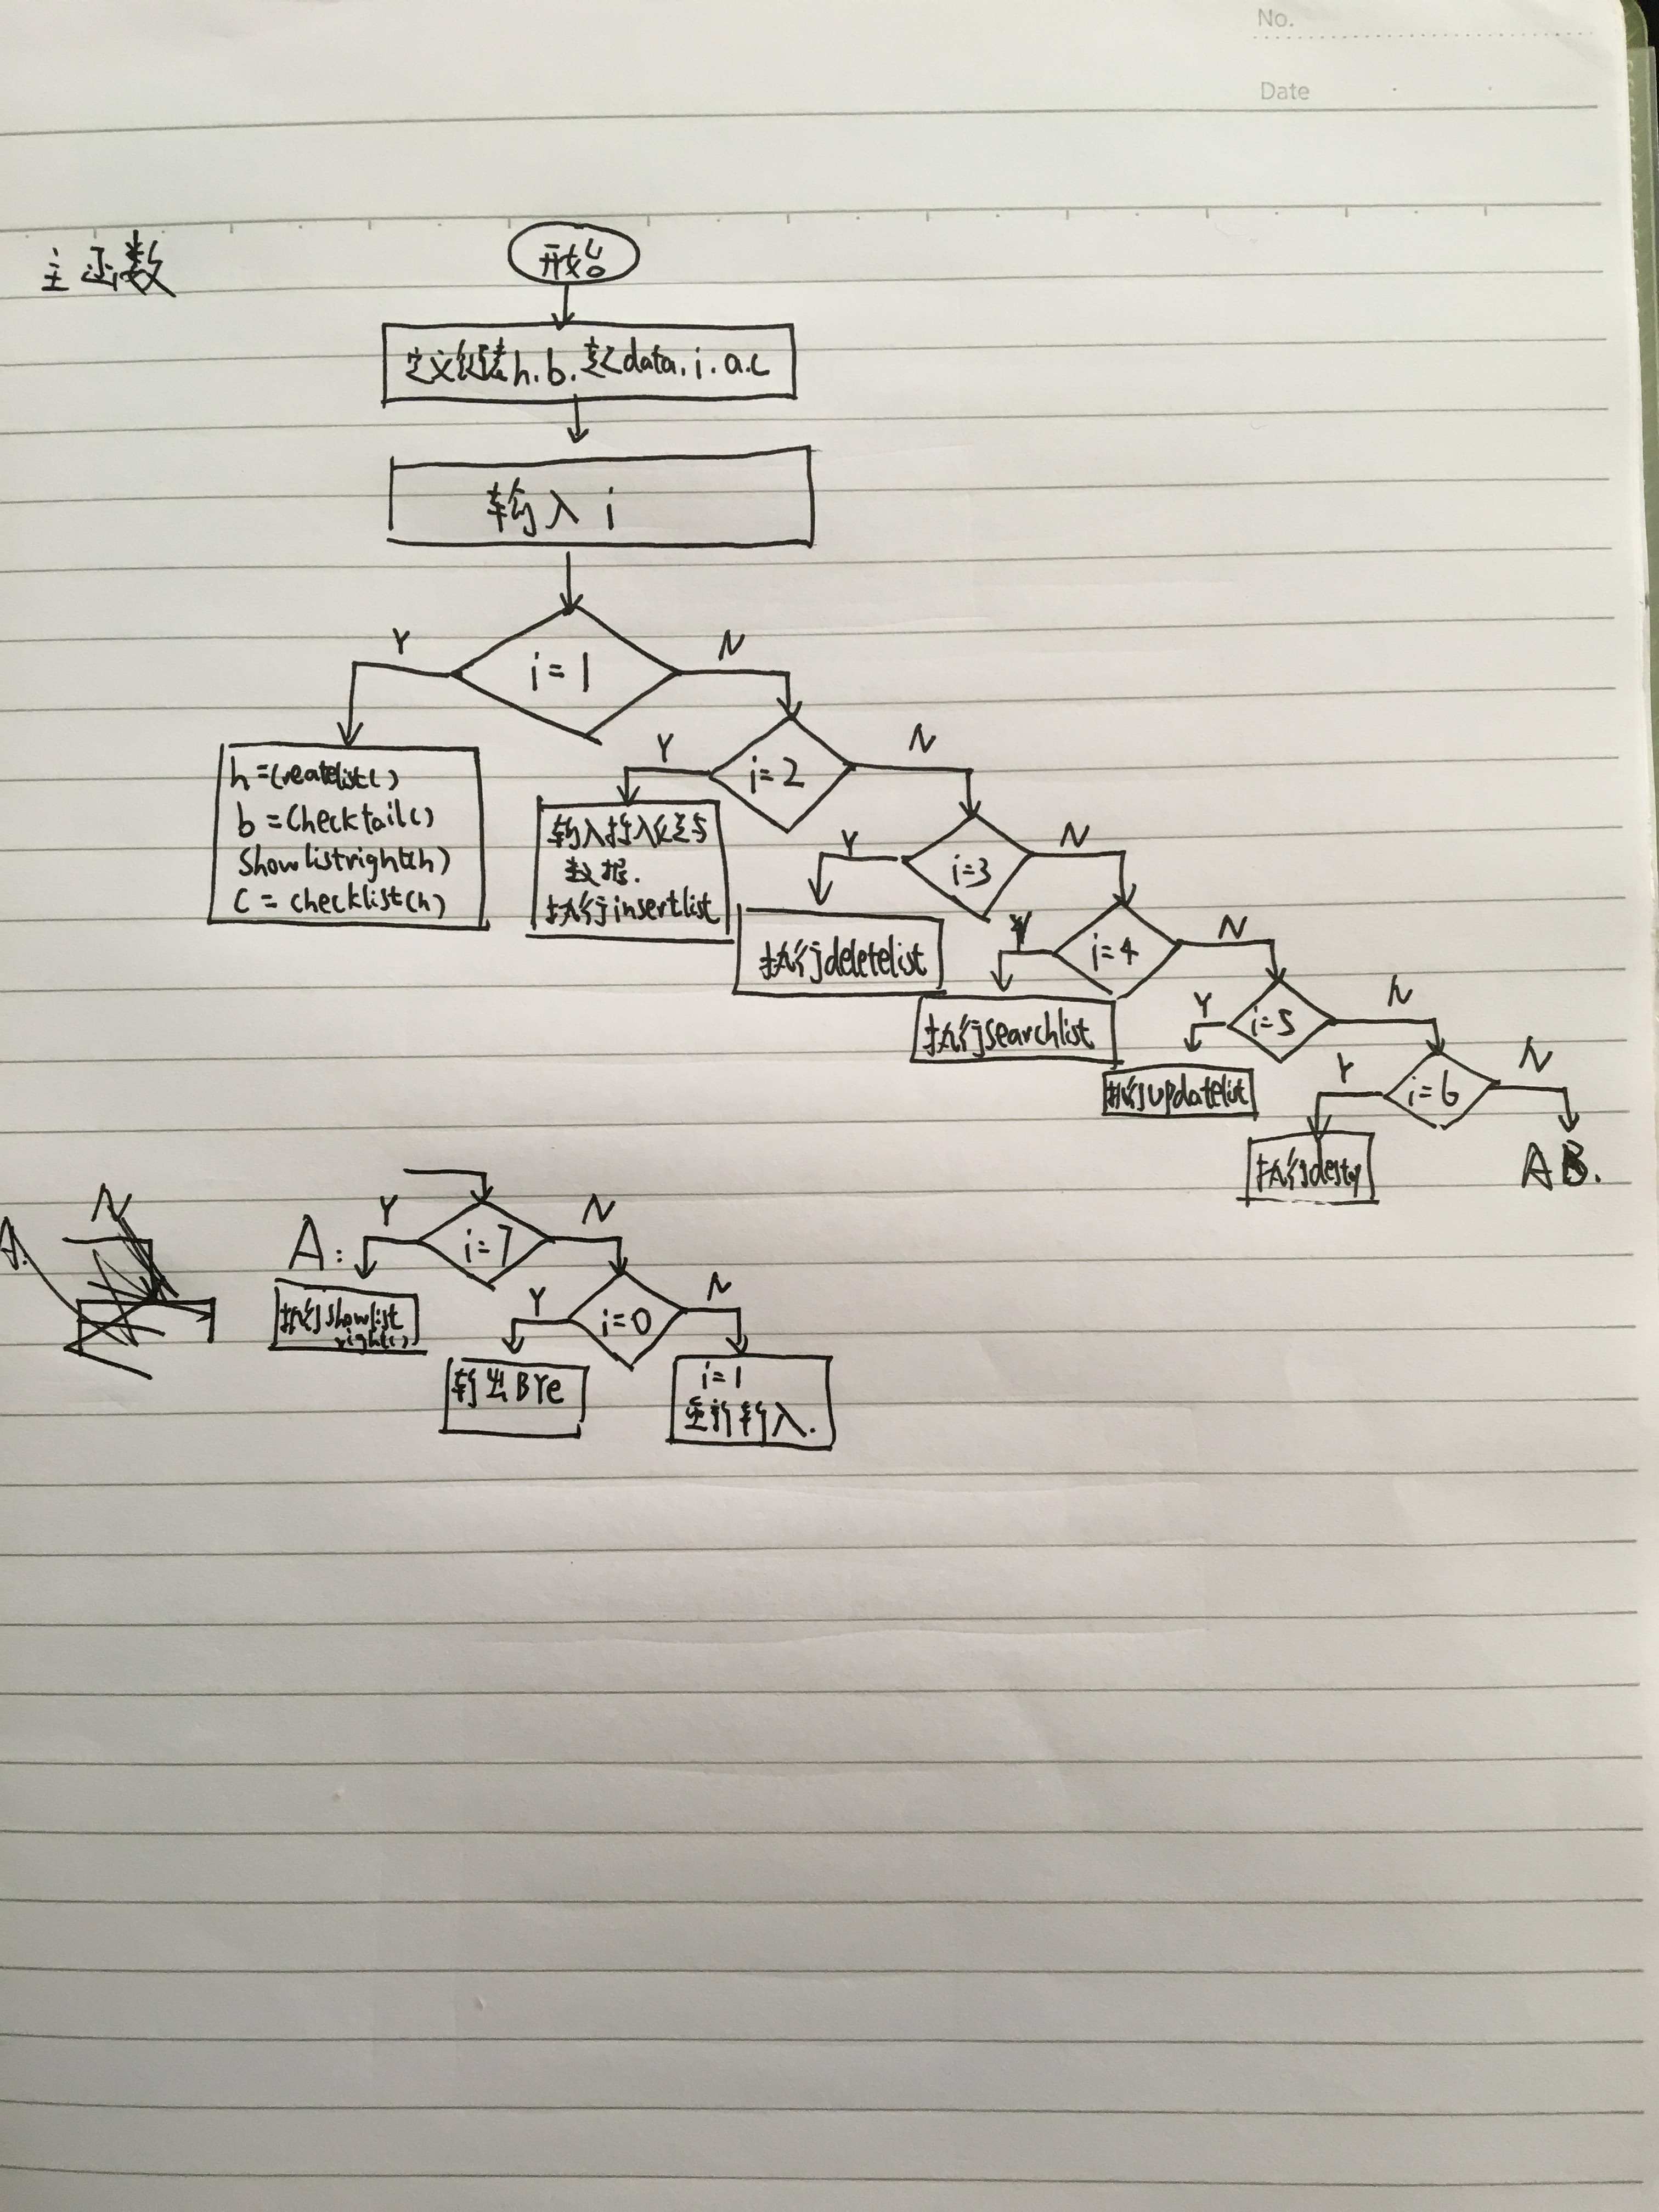 No.
Date
主函数
开始
定义链表h.b.整data.i.a.c
输入 i
i=1
Y
N
h=Createlist()
b=Checktail()
Showlistright(h)
C=checklist(h)
i=2
Y
N
输入插入位置与
数据.
执行insertlist
i=3
Y
N
执行deletelist
i=4
Y
N
执行searchlist
i=5
Y
N
执行updatelist
i=6
Y
N
执行desty
A
A:
i=7
Y
N
执行showlist
right()
i=0
Y
N
输出BYe
i=1
重新输入.